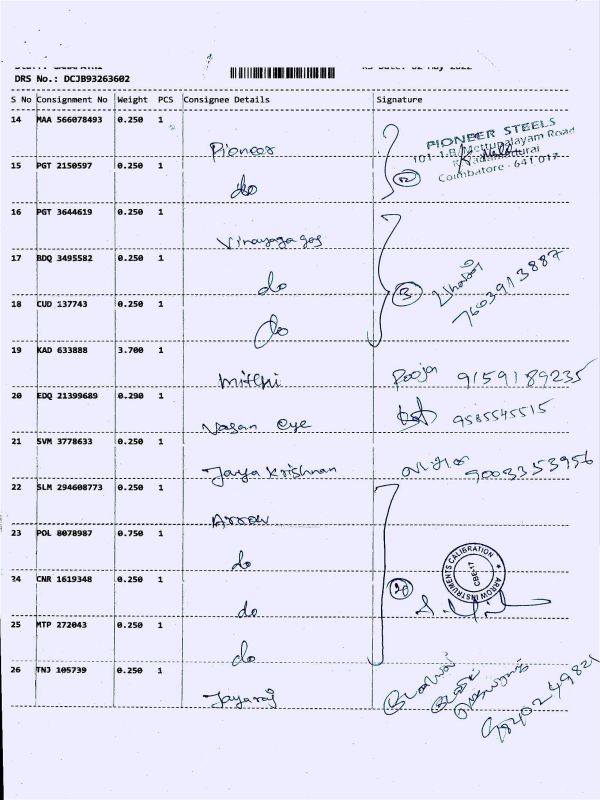 DRS No.: DCJB93263602
S No Consignment No Weight PCS Consignee Details Signature
14 MAA 566078493 0.250 1 Pioneer
PIONEER STEELS
101 1-B, Mettupalayam Road
Coimbatore - 641 017
15 PGT 2150597 0.250 1 do
16 PGT 3644619 0.250 1 Vinayaga gas
17 BDQ 3495582 0.250 1 do
7603913887
18 CUD 137743 0.250 1 do
19 KAD 633888 3.700 1 Mithi Pooja 9159189235
20 EDQ 21399689 0.290 1 Vasan eye 9585545515
21 SVM 3778633 0.250 1 Jaya Krishnan 9003353956
22 SLM 294608773 0.250 1 Arrow
23 POL 8078987 0.750 1 do
ARROW INSTRUMENTS CALIBRATION
CBE-17
24 CNR 1619348 0.250 1 do
25 MTP 272043 0.250 1 do
26 TNJ 105739 0.250 1 Jayaraj